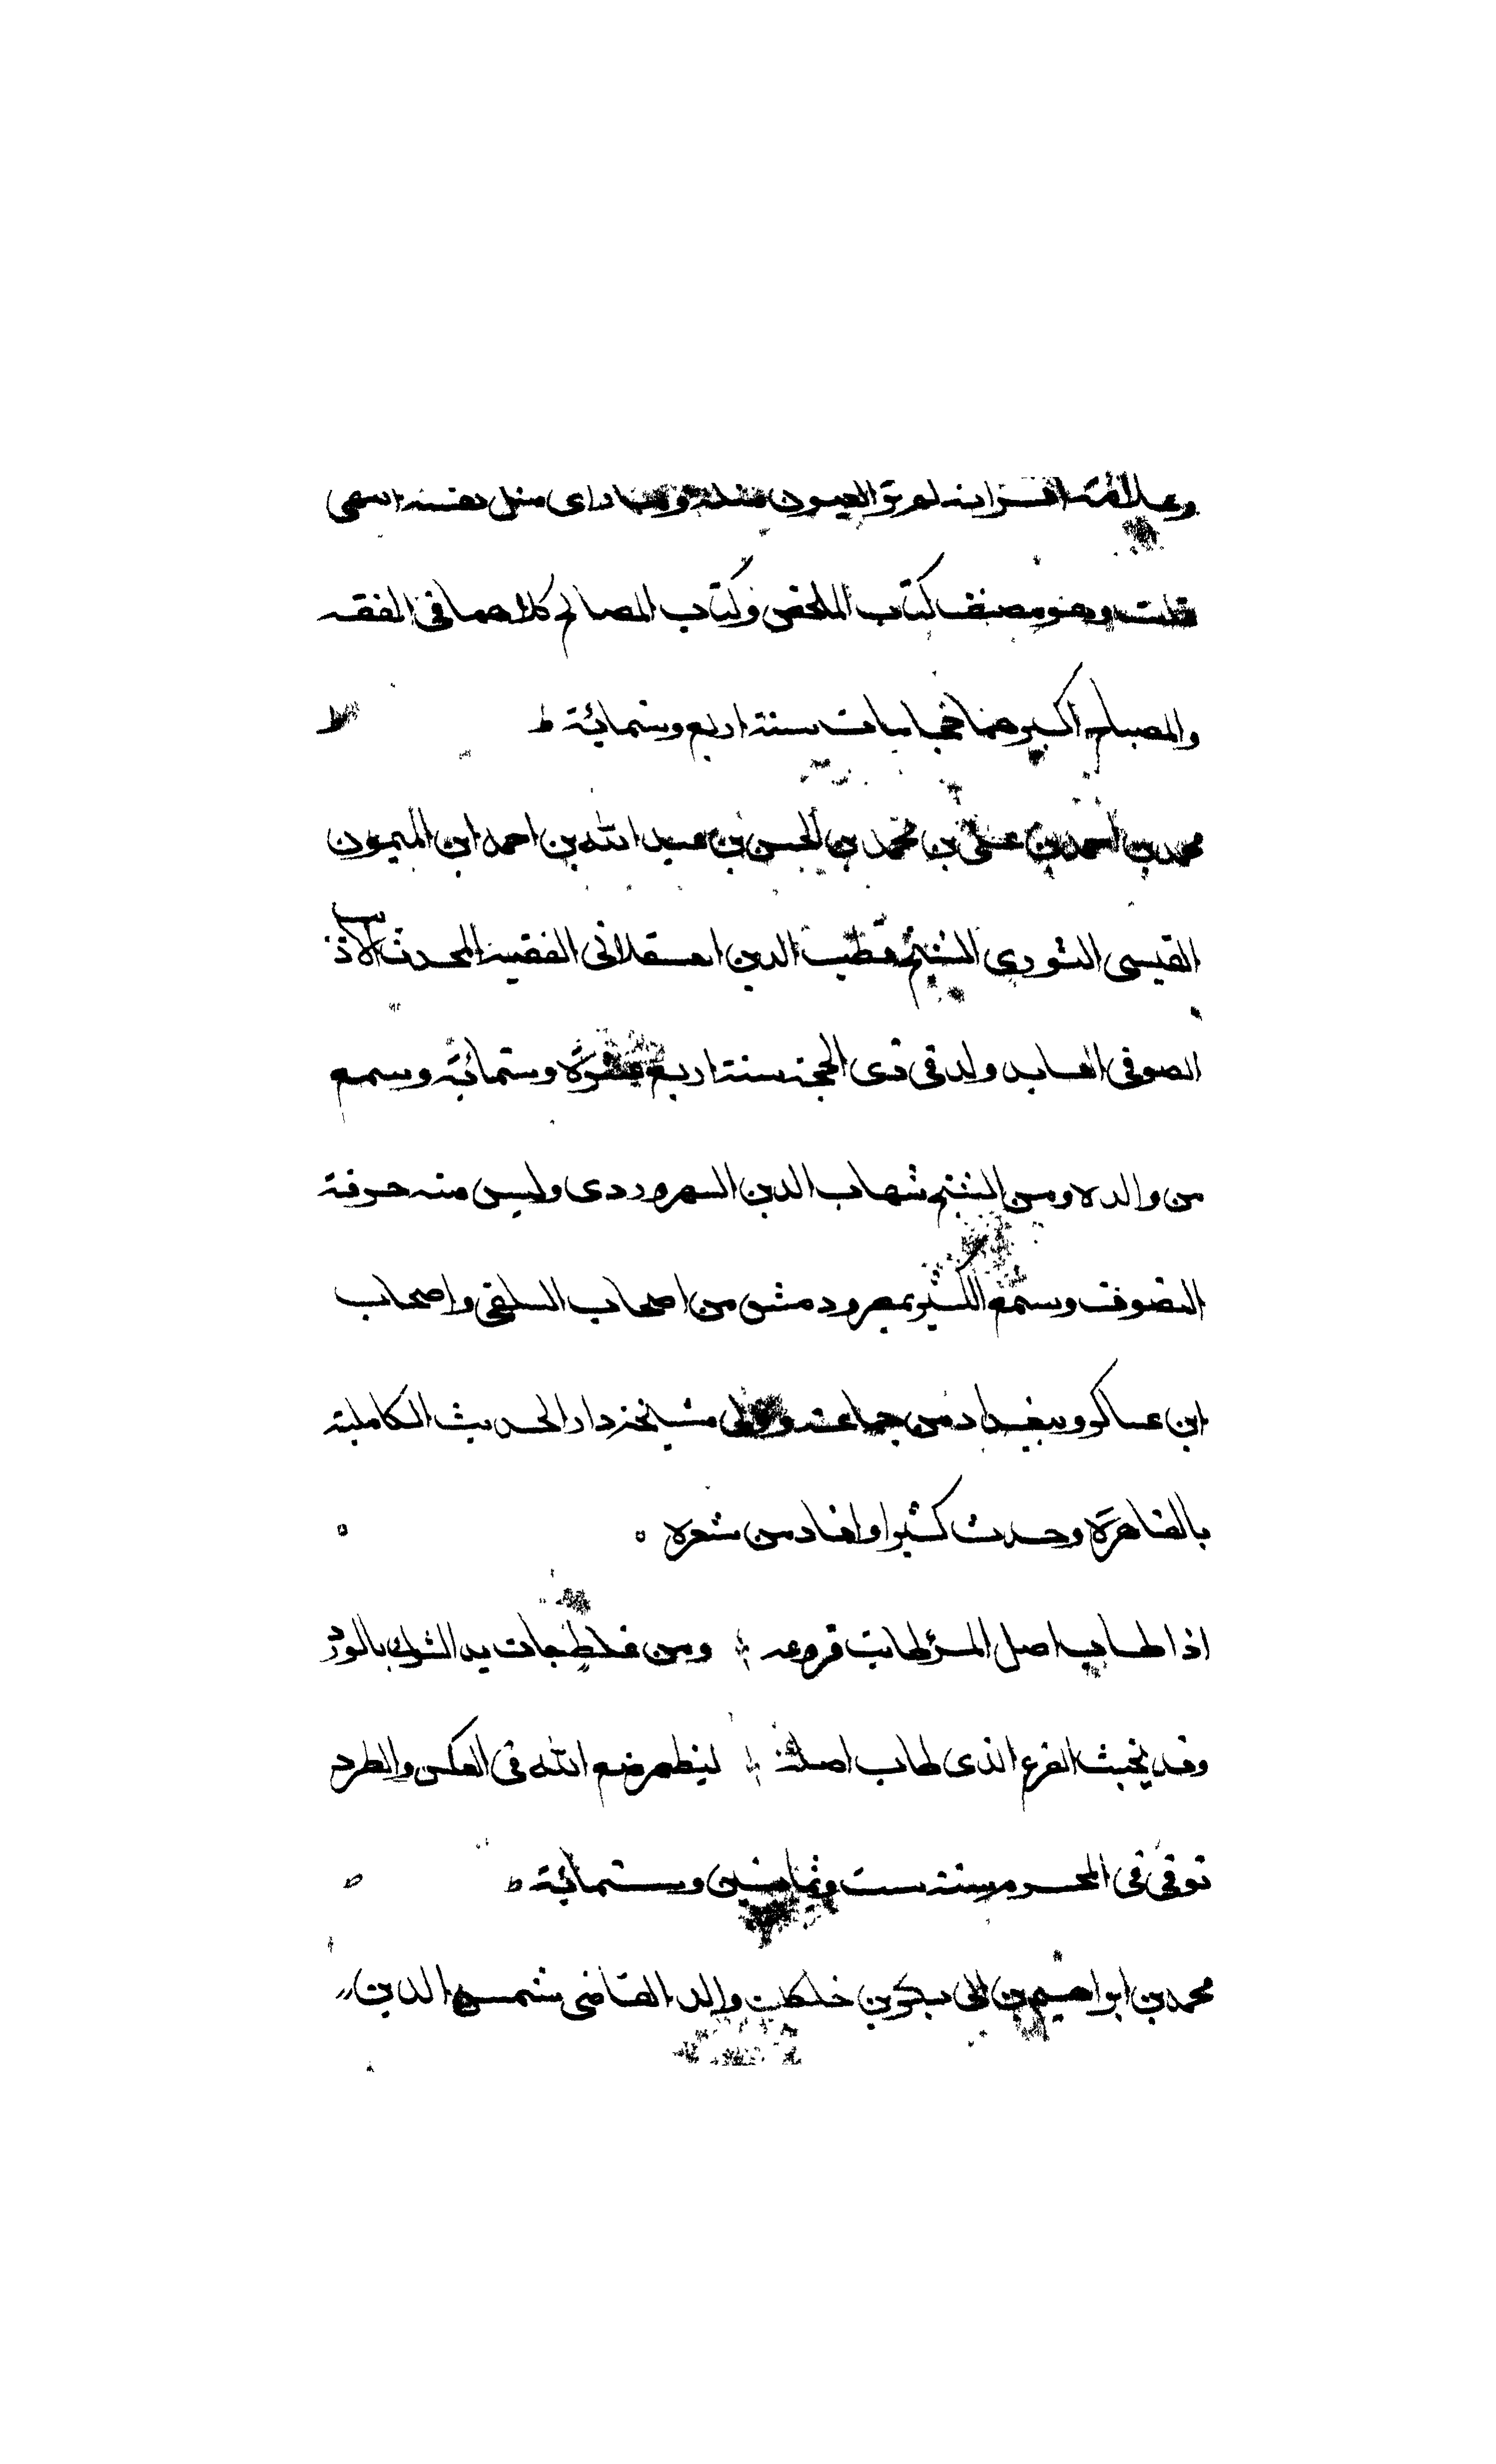 وعلامة اقرانه لم تر العيون مثله وما راى مثل نفسه انتهى
قلت وهو مصنف كتاب الملخص وكتاب المصالح كلاهما فى الفقه
والمصباح اكبرهما حجما مات سنة اربع وستمائة ط
محمد بن احمد بن على بن محمد بن الحسن بن عبد الله بن احمد ابن الميمون
القيسى التوزرى الشيخ قطب الدين العسقلانى الفقيه المحدث الاديب
الصوفى العابد ولد فى ذى الحجة سنة اربع عشرة وستمائة وسمع
من والده ومن الشيخ شهاب الدين السهروردى ولبس منه خرقة
التصوف وسمع الكثير بمصر ودمشق من اصحاب السلفى واصحاب
ابن عساكر وببغداد من جماعة وولى مشيخة دار الحديث الكاملية
بالقاهرة وحدث كثيرا وافاد من شعره ٥
اذا طاب اصل المرئ طابت فروعه ومن غلط جات يد الشوك بالورد
وقد يخبث الفرع الذى طاب اصله ليظهر صنع الله فى العكس والطرد
توفى فى المحرم سنة ست وثمانين وستمائة ط
محمد بن ابراهيم بن ابى بكر بن خلكان والد القاضى شمس الدين